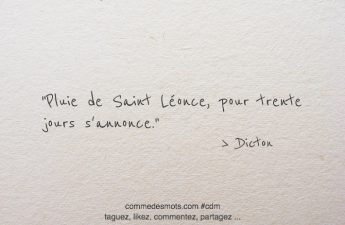 "Pluie de Saint Léonce, pour trente
jours s'annonce."
> Dicton
commedesmots.com #cdm
taguez, likez, commentez, partagez ...